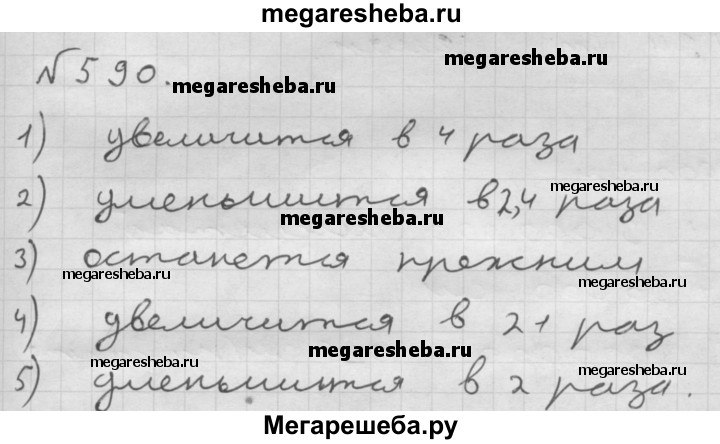 megaresheba.ru
№590. megaresheba.ru
1) увеличится в 4 раза
megaresheba.ru
2) уменьшится в 2,4 раза
megaresheba.ru
3) останется прежним
megaresheba.ru megaresheba.ru
4) увеличится в 21 раз
megaresheba.ru
megaresheba.ru megaresheba.ru
5) уменьшится в 2 раза.
Мегарешеба.ру